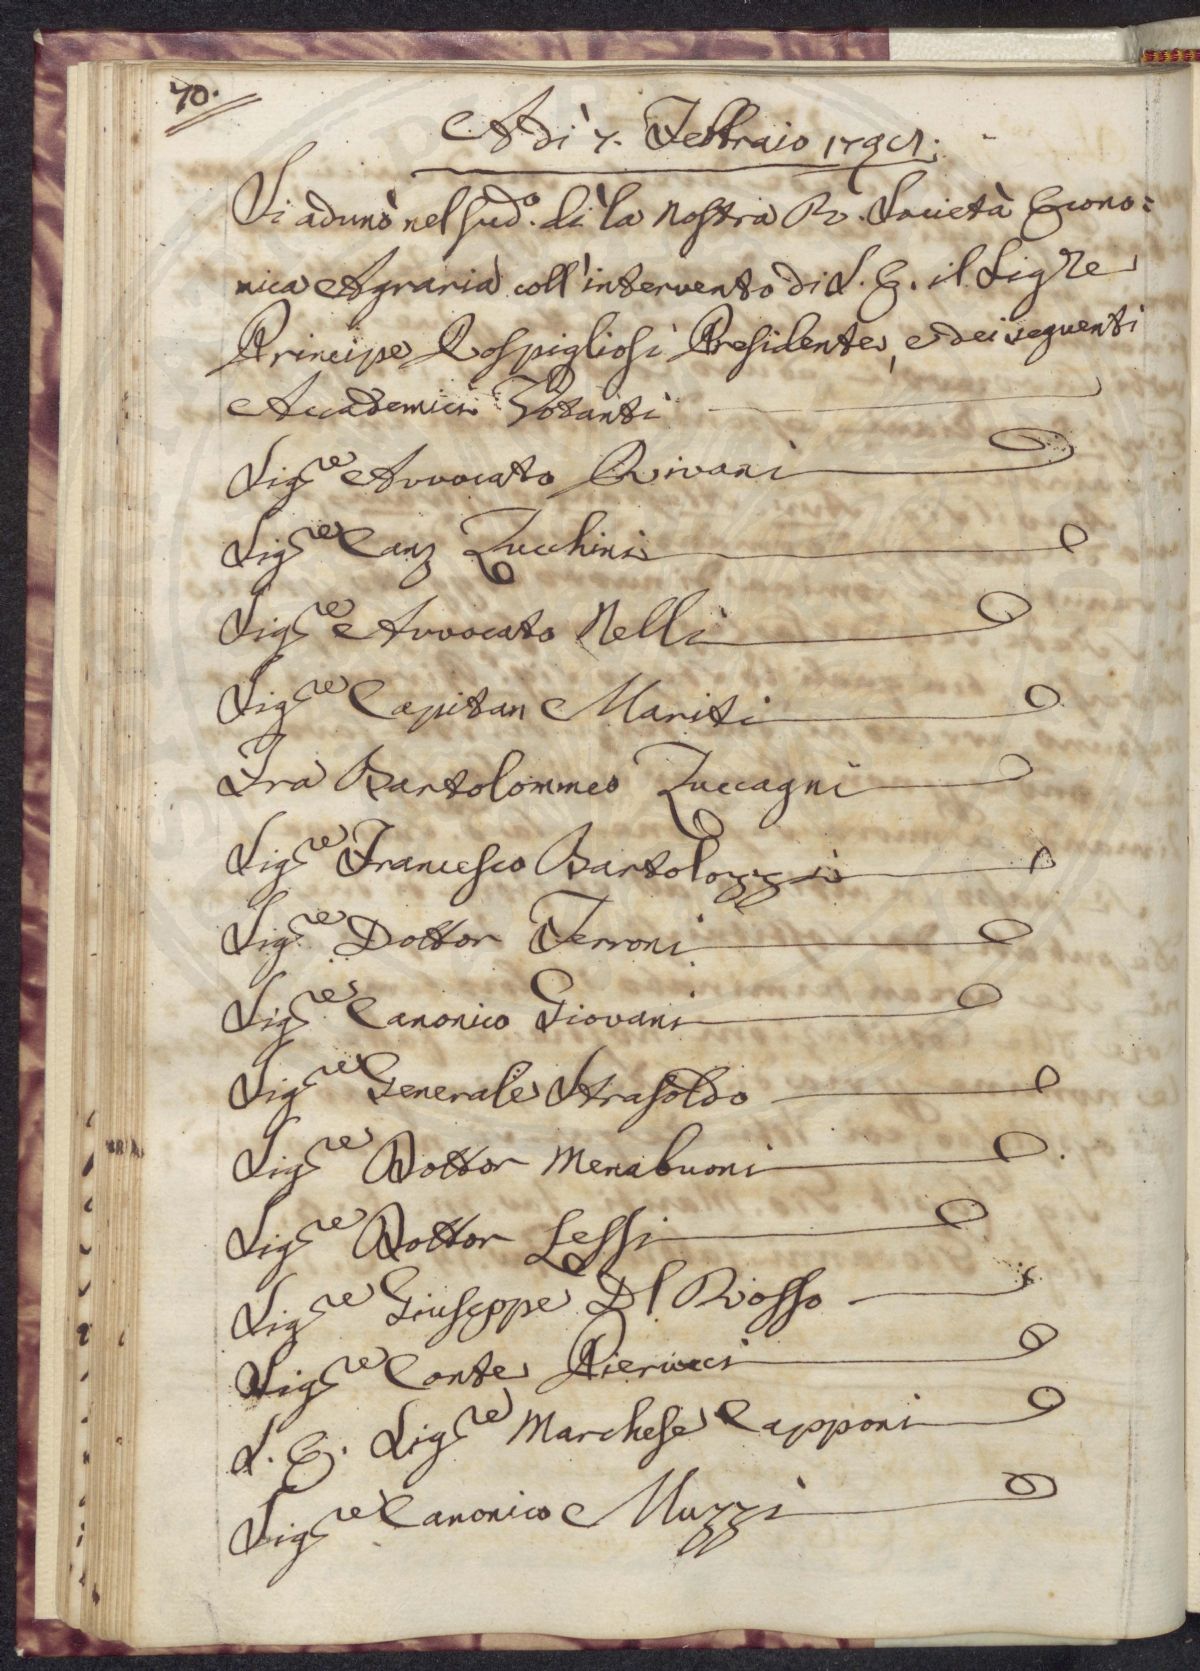 70.
Adì 7. Febbraio 1791:
Si adunò nel sud.º dì la nostra R. Società Econo=
mica Agraria coll'intervento di S. E. il Sigre
Principe Rospigliosi Presidente, e dei seguenti
Accademici Votanti
Sigre Avvocato Rivani
Sigre Canz Zucchini
Sigre Avvocato Nelli
Sigre Capitan Mariti
Fra Bartolommeo Zuccagni
Sigre Francesco Bartolozzi
Sigre Dottor Ferroni
Sigre Canonico Giovani
Sigre Generale Strasoldo
Sigre Dottor Menabuoni
Sigre Dottor Lessi
Sigre Giuseppe Dl Rosso
Sigre Conte Pierucci
S. E. Sigre Marchese Capponi
Sigre Canonico Muzzi